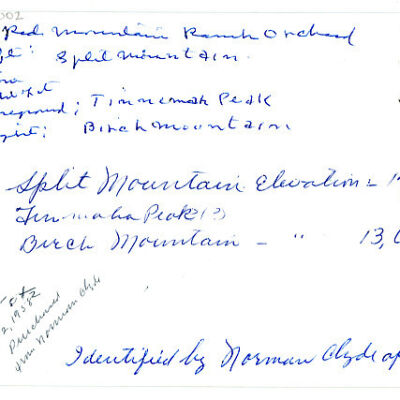 002
Red Mountain Ranch Orchard
Split Mountain.
Tinnemah Peak
Birch Mountain
Split Mountain Elevation - 1
Tinmaha Peak(?)
Birch Mountain - " 13,
2, 1982
Purchased
from Norman Clyde
Identified by Norman Clyde ap